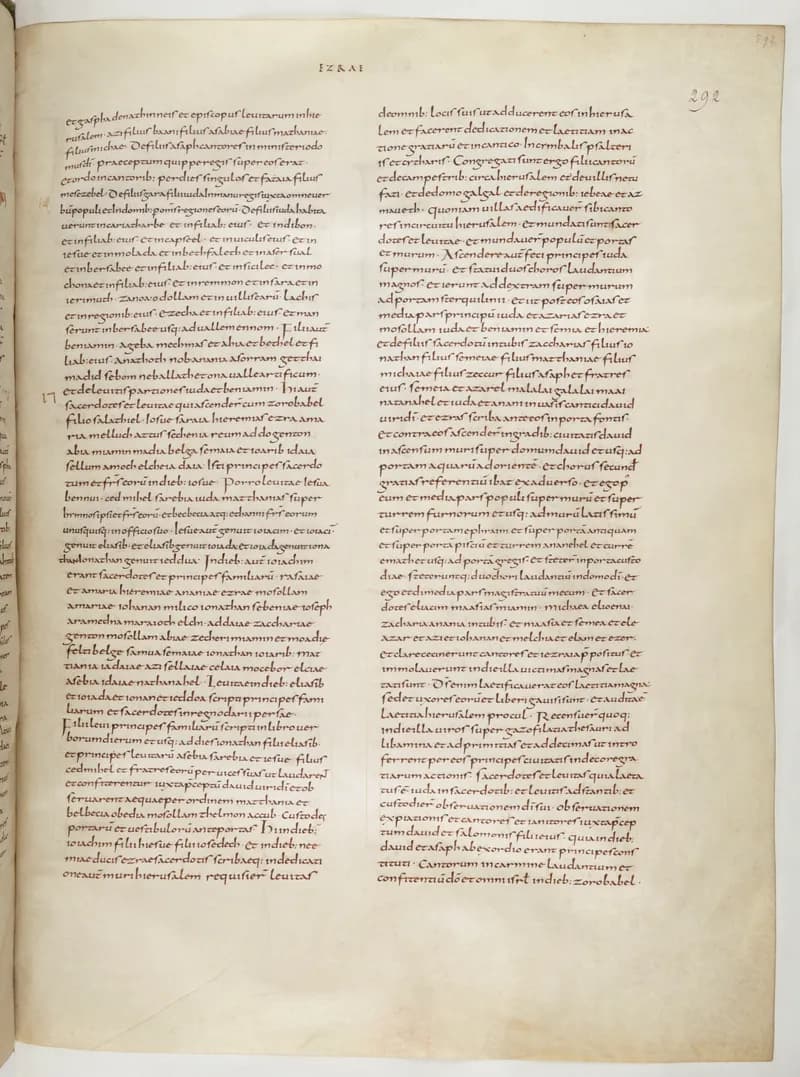 EZRAE
292
et gaspha de nathinneis et episcopus leuitarum in hie
rusalem · azi filius baani filius asabiae filius mathaniae ·
filius michae · De filiis asaph cantores in ministerio do
mus di · praeceptum quippe regis super eos erat ·
et ordo in cantorib; per dies singulos et fataia filius
mesezebel · De filiis zara filii iuda In manu regis iuxta omne uer
bū populi et In domib; per om̄s regiones eorū · De filiis iuda habita
uerunt in cariatharbe · et in filiab; eius · et in dibon ·
et in filiab; eius · et in capseel · et in uiculis eius et in
iesue et in molada et in bethfaleth et in aser sual
et in bersabee et in filiab; eius · et in sicilec · et in mo
chona et in filiab; eius · et in remmon et in sara et in
ierimuth · zanoa odollam et in uillis earū · lachis
et in regionib; eius · et zecha et in filiab; eius · et man
serunt in bersabee usq; ad uallem ennom · Filii autē
beniamin · a geba mechmas et ahia et bethel et fi
liab; eius · anathoth nob anania asor rama getthai
madid sebom neballath et ono ualle artificum ·
17
et de leuitis partiones iuda et beniamin · Hi autē
sacerdotes et leuitae qui ascenderunt cum zorobabel
filio salathiel · Iosue saraia hieremias ezra ama
ria melluch attus sechenia reum
abia miamin madia belga semaia et ioarib idaia
sellum amoch elcheia daia · Isti principes sacerdo
tum et frs̄ eorū in dieb; iosue · Porro leuitae iesua
bennui · cedmihel sarebia iuda matthanias super
hymnos ipsi et frs̄ eorū · et becbecia atq; et hanni frs̄ eorum
unusquisq; in officio suo · Iesue autē genuit ioiacim · et ioiacī
genuit eliasib · et eliasib genuit ioiada et ioiada genuit iona
than Ionathan genuit ieddua · In dieb; autē ioiachim
erant sacerdotes et principes familiarū · rasaiae ·
et amaria hieremiae ananiae ezrae mosollam
amariae iohanan milico ionathan sebeniae ioseph
aram edna maraioth elchi · addaiae zacchariae ·
genton mosollam abiae zecheri miamin et moadie
felti belge samua semaiae ionathan ioiarib · mat
tiania iadaiae azi sellaiae celaia mocebor elciae
asebia idaiae nathanahel · Leuitae in dieb; eliasib
et ioiada et ionan et ieddoa scripti principes fami
liarum et sacerdotes in regno darii persae ·
Filii leui principes familiarū scripti in libro uer
borum dierum et usq; ad dies ionathan filii eliasib ·
et principes leuitarū asebia sarebia et iesue filius
cedmihel et fratres eorū per uices suas ut laudarent
et confiterentur iuxta praeceptū dauid uiri di et ob
seruarent aequae per ordinem matthania et
belbecia obedia mosollam thelmon accub · Custodes
portarū et uestibulorū ante portas · Hi in dieb;
ioiachim filii hiesue filii iosedech · et in dieb; nee
miae ducis ezrae sacerdotis scribaeq; in dedicati
one autē muri hierusalem requisierunt leuitas
de omnib; locis suis ut adducerent eos in hierusa
lem et facerent dedicationem et laetitiam in ac
tione gratiarū et in cantico · In cymbalis psalteri
is et cytharis · Congregati sunt ergo filii cantorū
et de campestrib; circa hierusalem et de uillis netu
fati · et de domo galgal et de regionib; iebeae et az
maueth · quoniam uillas aedificauer̄ sibi canto
res in circuitu hierusalem · et mundati sunt sacer
dotes et leuitae · et mundauer̄ populū et portas
et murum · Ascendere autē feci principes iuda
super murū · et statui duos choros laudantium
magnos · et ierunt ad dextram super murum
ad portam sterquilinii · et iit post eos osaias et
media pars principū iuda et azarias ezra et
mosollam iuda et beniamin et semia et hieremia
et de filiis sacerdotū in tubis zaccharias filius io
nathan filius semeiae filius matthaniae filius
michaiae filius zeccur filius asaph et fratres
eius · semeia et azarel malalai galalai maai
natanahel et iuda et anani in uasis cantici dauid
uiri di · et ezras scriba ante eos in porta fontis
et contra eos ascender̄ in gradib; ciuitatis dauid
in ascensum muri super domum dauid et usq; ad
portam aquarū ad orientē · et chorus secund;
gratias referentiū ibat ex aduerso · et ego p̄
eum et media pars populi super murū et super
turrem furnorum et usq; ad murū latissimū
et super portam ephraim et super portā antiquam
et super portā pisciū et turrem ananehel et turrē
emath et usq; ad portā gregis · et steter̄ in porta custo
diae · steceruntq; duo chori laudantiū in domo di · et
ego et dimedia pars magistratuū mecum · et sacer
dotes eliacim maasias miamin · michaea elioenai ·
zacharia anania in tubis · et maasia et semea et ele
azar et azi et iohanan et melchia et elam et ezer ·
et clare cecinerunt cantores et iezraia p̄positus et
immolauerunt in die illa uictimas magnas et lae
tati sunt · Ds̄ enim laetificauerat eos laetitia magna ·
sed et uxores eorū et liberi gauisi sunt · et audita ē
laetitia hierusalem procul · Recensuer̄ quoq;
in die illa uiros super gazofilatia thesauri ad
libamina et ad primitias et ad decimas ut intro
ferrent per eos principes ciuitatis in decore gra
tiarum actionis · sacerdotes et leuitas quia laeta
tus ē iuda in sacerdotib; et leuitis adstantib; et
custodier̄ obseruationem di sui · obseruationem
expiationis et cantores et ianitores iuxta p̄cep
tum dauid et salomonis filii eius quia in dieb;
dauid et asaph ab exordio erant principes cons
tituti · Cantorum in carmine laudantium et
confitentiū dō et omnis isrl̄ in dieb; zorobabel ·